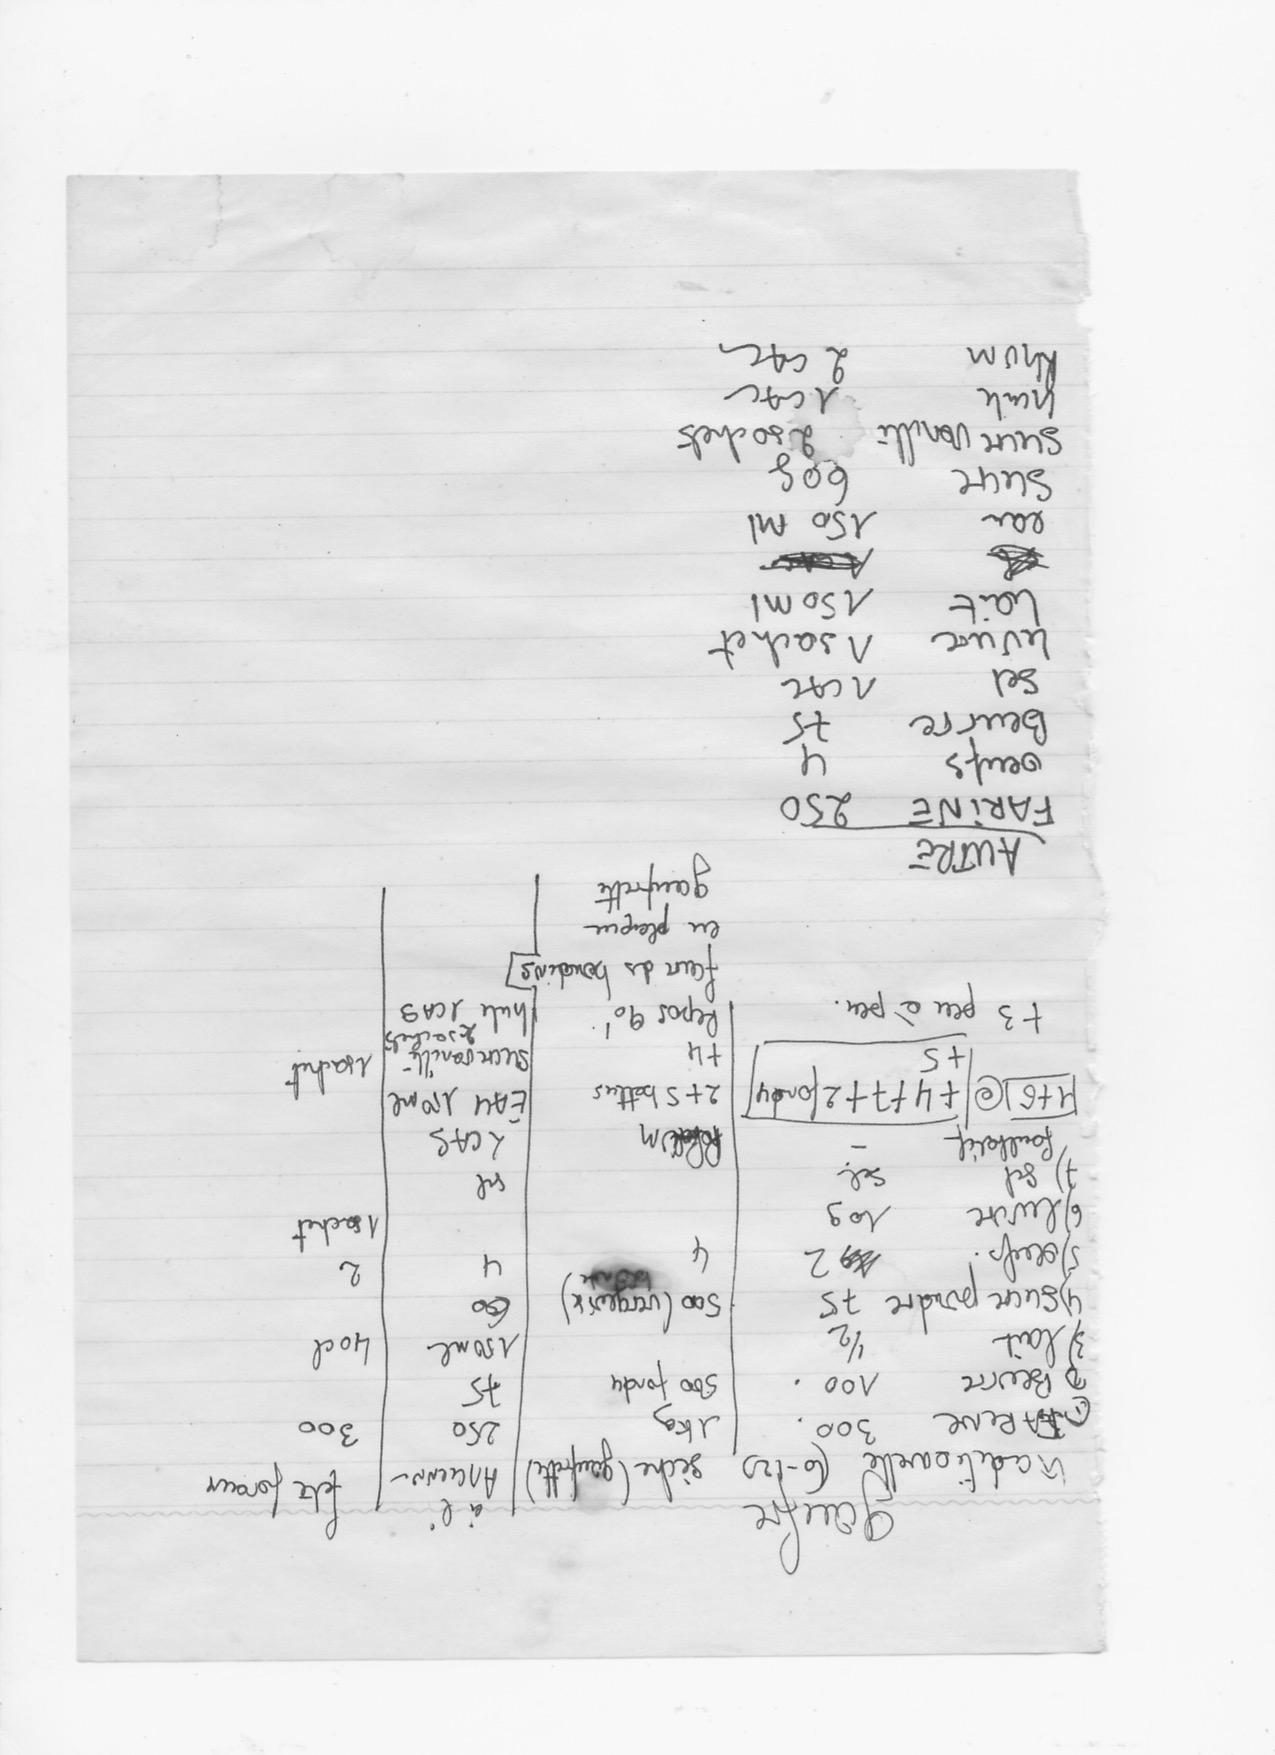 Gaufre
traditionnelle (6-12) sèche (gaufrette) à l'Ancienne fête foraine
1) FARINE 300 1kg 250 300
2) Beurre 100 500 fondu 75
3) lait 1/2 150 ml 40cl
4) Sucre poudre 75 500 (vergeoise) 60
5) Oeufs 2 4 4 2
6) levure 10g 1 sachet
7) sel sel sel
facultatif - RHUM 2 CAS
4+6 @ +4+7+2 fondu 2+5 battus EAU 150 ml
+5 +4 sucre vanillé 2 sachets 1 sachet
+ 3 peu à peu. Repos 90'. huile 1 CAS
faire ds boudins
gaufrette
AUTRE
FARINE 250
oeufs 4
Beurre 75
sel 1 CAC
levure 1 sachet
Lait 150 Ml
eau 150 Ml
sucre 60g
sucre vanillé 2 sachets
huile 1 CAC
Rhum 2 CAC